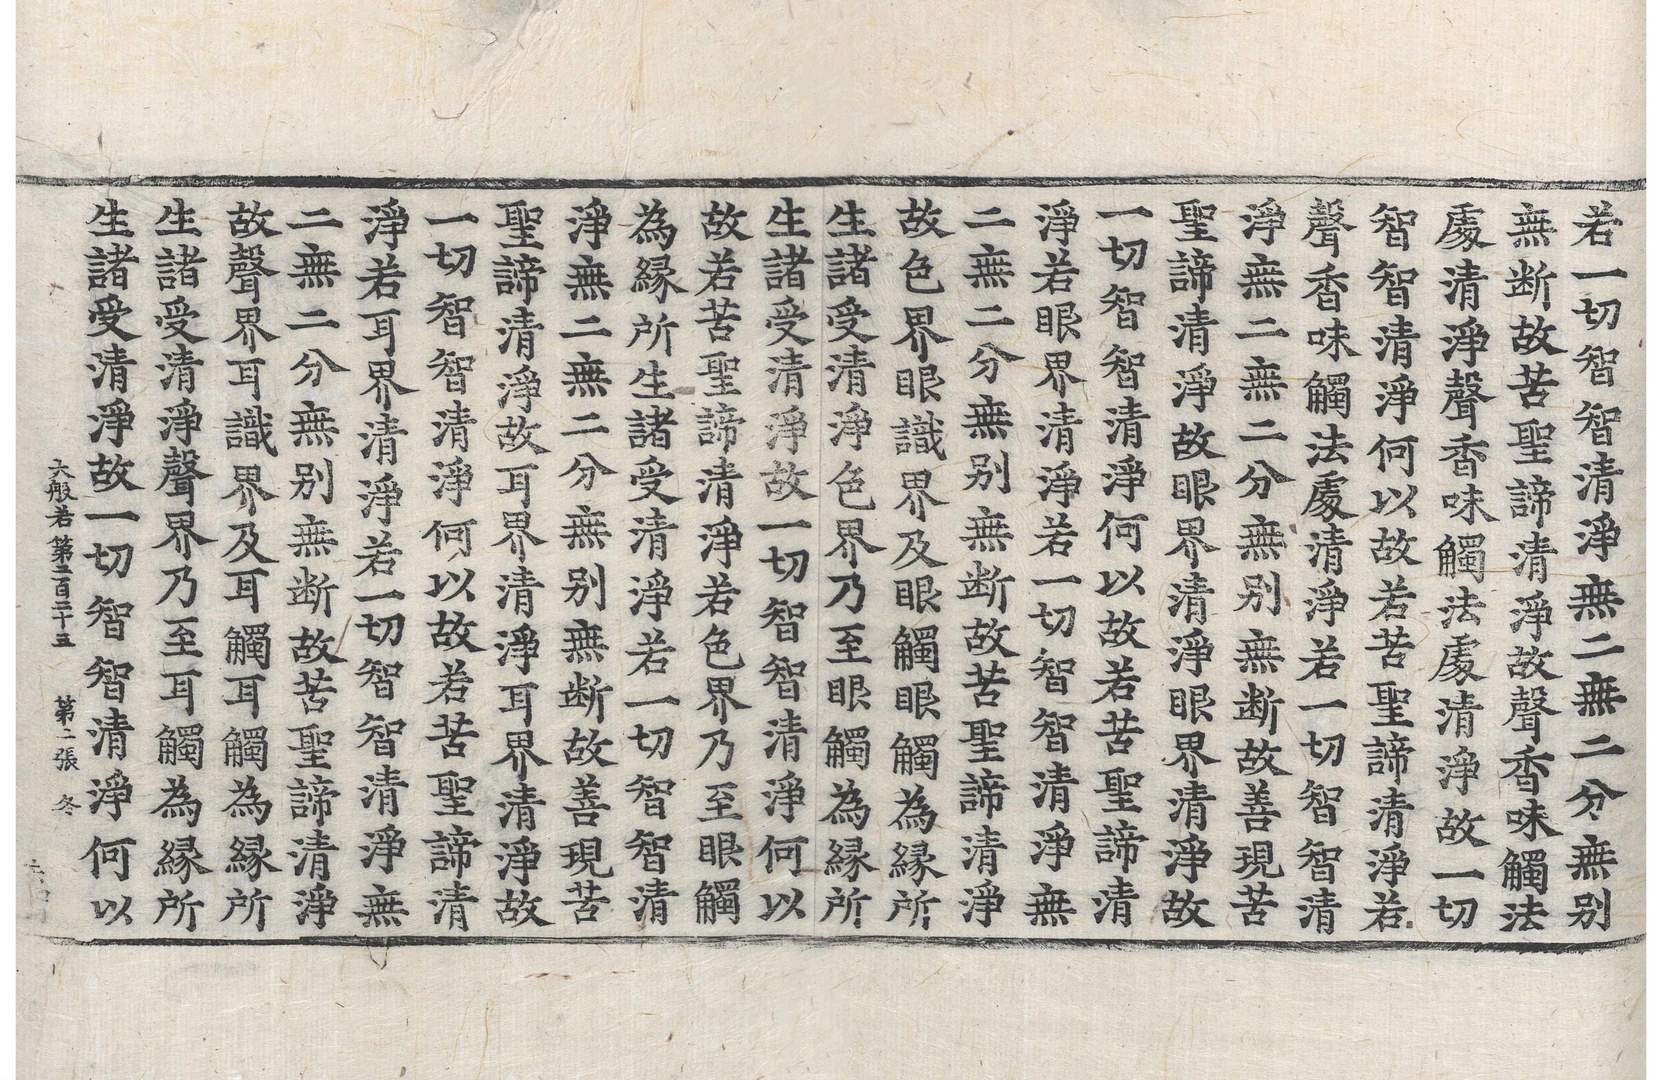 若一切智智清淨無二無二分無别
無断故苦聖諦清淨故聲香味觸法
處清淨聲香味觸法處清淨故一切
智智清淨何以故若苦聖諦清淨若
聲香味觸法處清淨若一切智智清
淨無二無二分無别無断故善現苦
聖諦清淨故眼界清淨眼界清淨故
一切智智清淨何以故若苦聖諦清
淨若眼界清淨若一切智智清淨無
二無二分無别無断故苦聖諦清淨
故色界眼識界及眼觸眼觸為緣所
生諸受清淨色界乃至眼觸為緣所
生諸受清淨故一切智智清淨何以
故若苦聖諦清淨若色界乃至眼觸
為緣所生諸受清淨若一切智智清
淨無二無二分無别無断故善現苦
聖諦清淨故耳界清淨耳界清淨故
一切智智清淨何以故若苦聖諦清
淨若耳界清淨若一切智智清淨無
二無二分無别無断故苦聖諦清淨
故聲界耳識界及耳觸耳觸為緣所
生諸受清淨聲界乃至耳觸為緣所
生諸受清淨故一切智智清淨何以
大般若第二百二十五 第二張 冬